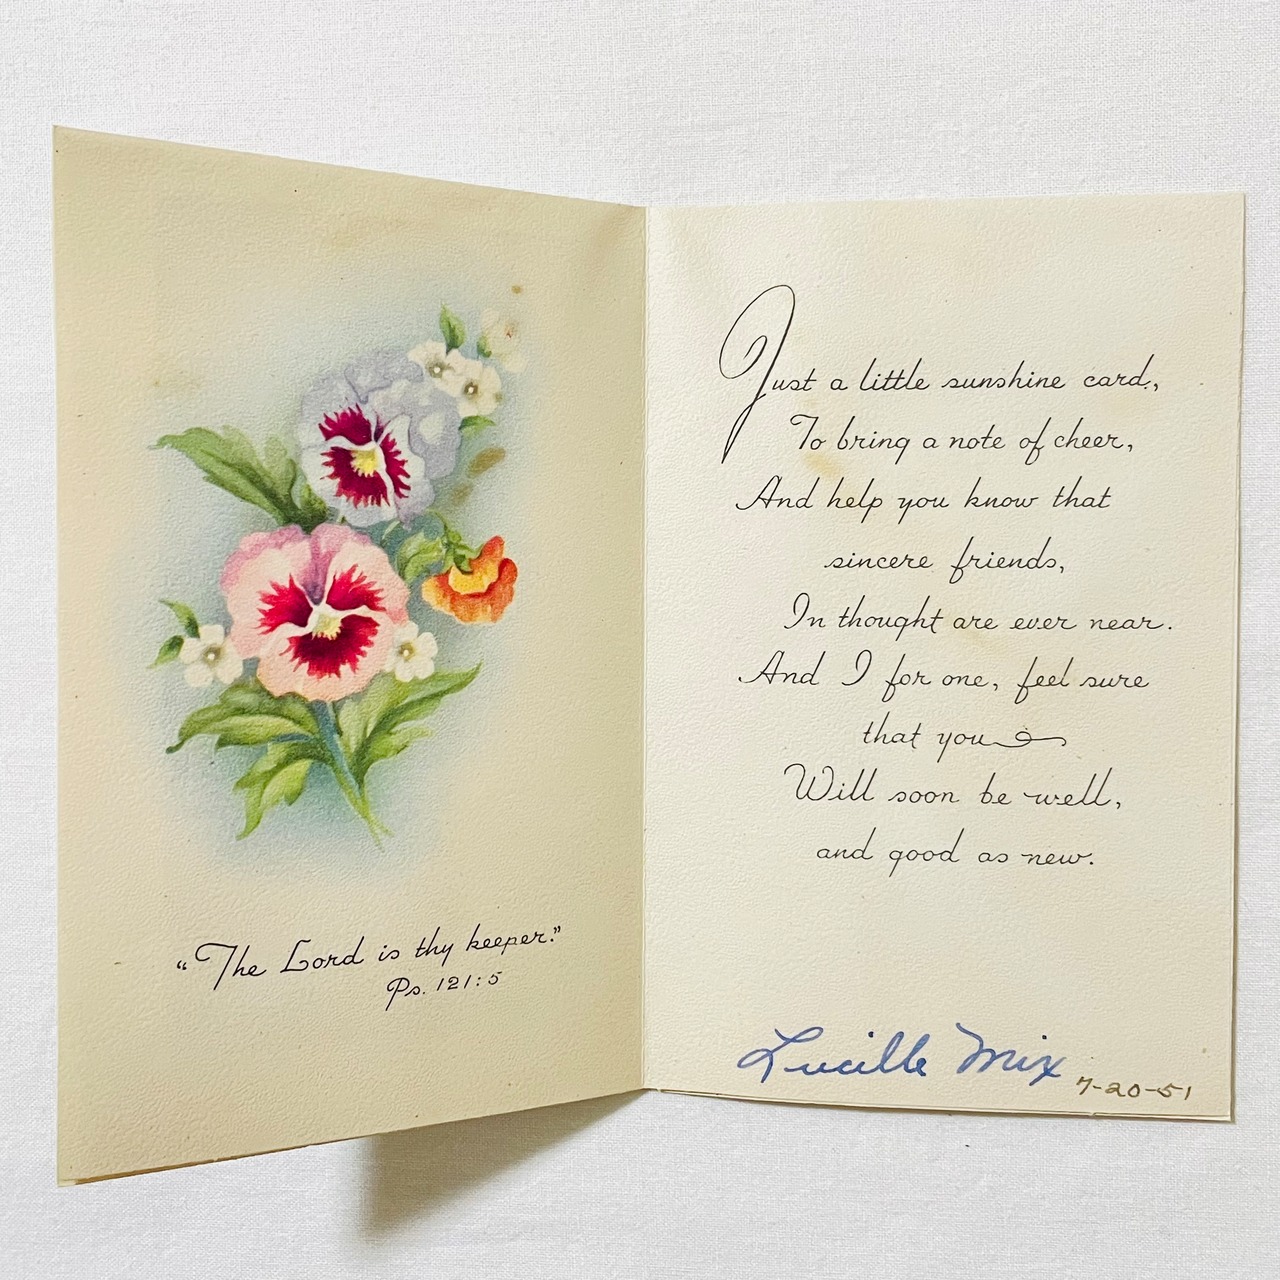 “The Lord is thy keeper.”
Ps. 121:5
Just a little sunshine card,
To bring a note of cheer,
And help you know that
sincere friends,
In thought are ever near.
And I for one, feel sure
that you
Will soon be well,
and good as new.
Lucille Mix
7-20-51